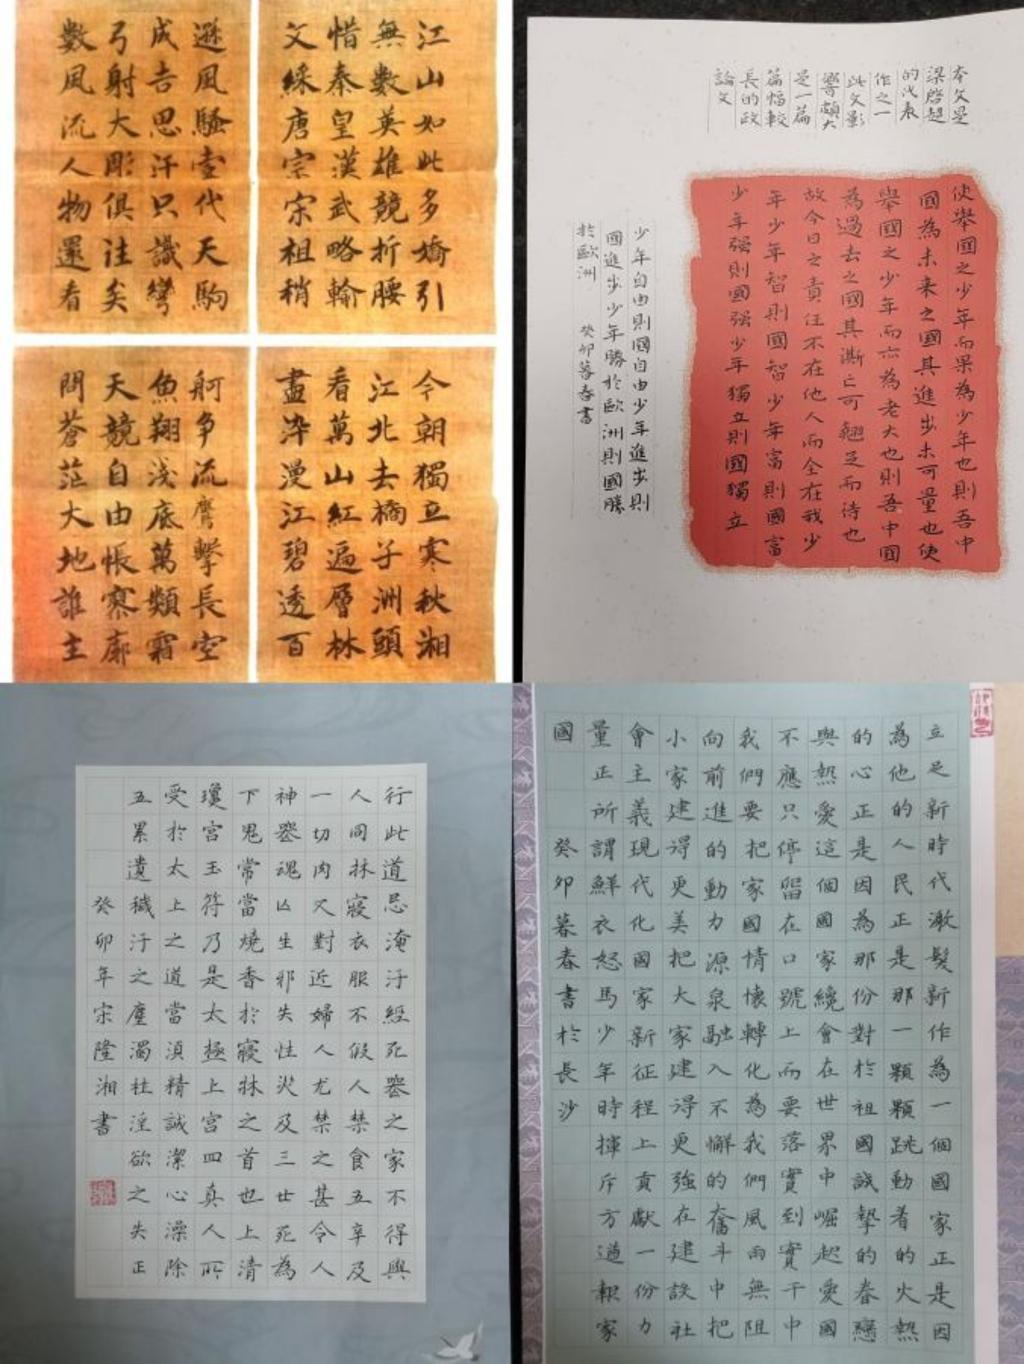 江山如此多嬌引
無數英雄競折腰
惜秦皇漢武略輸
文綵唐宗宋祖稍
遜風騷壹代天駒
成吉思汗只識彎
弓射大彫俱注矣
數風流人物還看
今朝獨立寒秋湘
江北去橘子洲頭
看萬山紅遍層林
盡染漫江碧透百
舸爭流鷹擊長空
魚翔淺底萬類霜
天競自由悵寥廓
問蒼茫大地誰主
本文是
梁啓超
的代表
作之一
此文影
響頗大
是一篇
篇幅較
長的政
論文
使舉國之少年而果為少年也則吾中
國為未来之國其進步未可量也使
舉國之少年而亦為老大也則吾中國
為過去之國其澌亡可翹足而待也
故今日之責任不在他人而全在我少
年少年智則國智少年富則國富
少年强則國强少年獨立則國獨立
少年自由則國自由少年進步則
國進步少年勝於歐洲則國勝
於歐洲 癸卯暮春書
行此道忌淹汙經死喪之家不得與
人同牀寢衣服不假人禁食五辛及
一切肉又對近婦人尤禁之甚令人
神喪魂亾生邪失性災及三世死為
下鬼常當燒香於寢牀之首也上清
瓊宮玉符乃是太極上宮四真人所
受於太上之道當須精誠潔心澡除
五累遺穢汙之塵濁杜淫欲之失正
癸卯年宋隆湘書
立足新時代激發新作為一個國家正是因
為他的人民正是那一顆顆跳動着的火熱
的心正是因為那份對於祖國誠摯的眷戀
與熱愛這個國家纔會在世界中崛起愛國
不應只停留在口號上而要落實到實干中
我們要把家國情懷轉化為我們風雨無阻
向前進的動力源泉融入不懈的奮斗中把
小家建得更美把大家建得更強在建設社
會主義現代化國家新征程上貢獻一份力
量正所謂鮮衣怒馬少年時揮斥方遒報家
國 癸卯暮春書於長沙